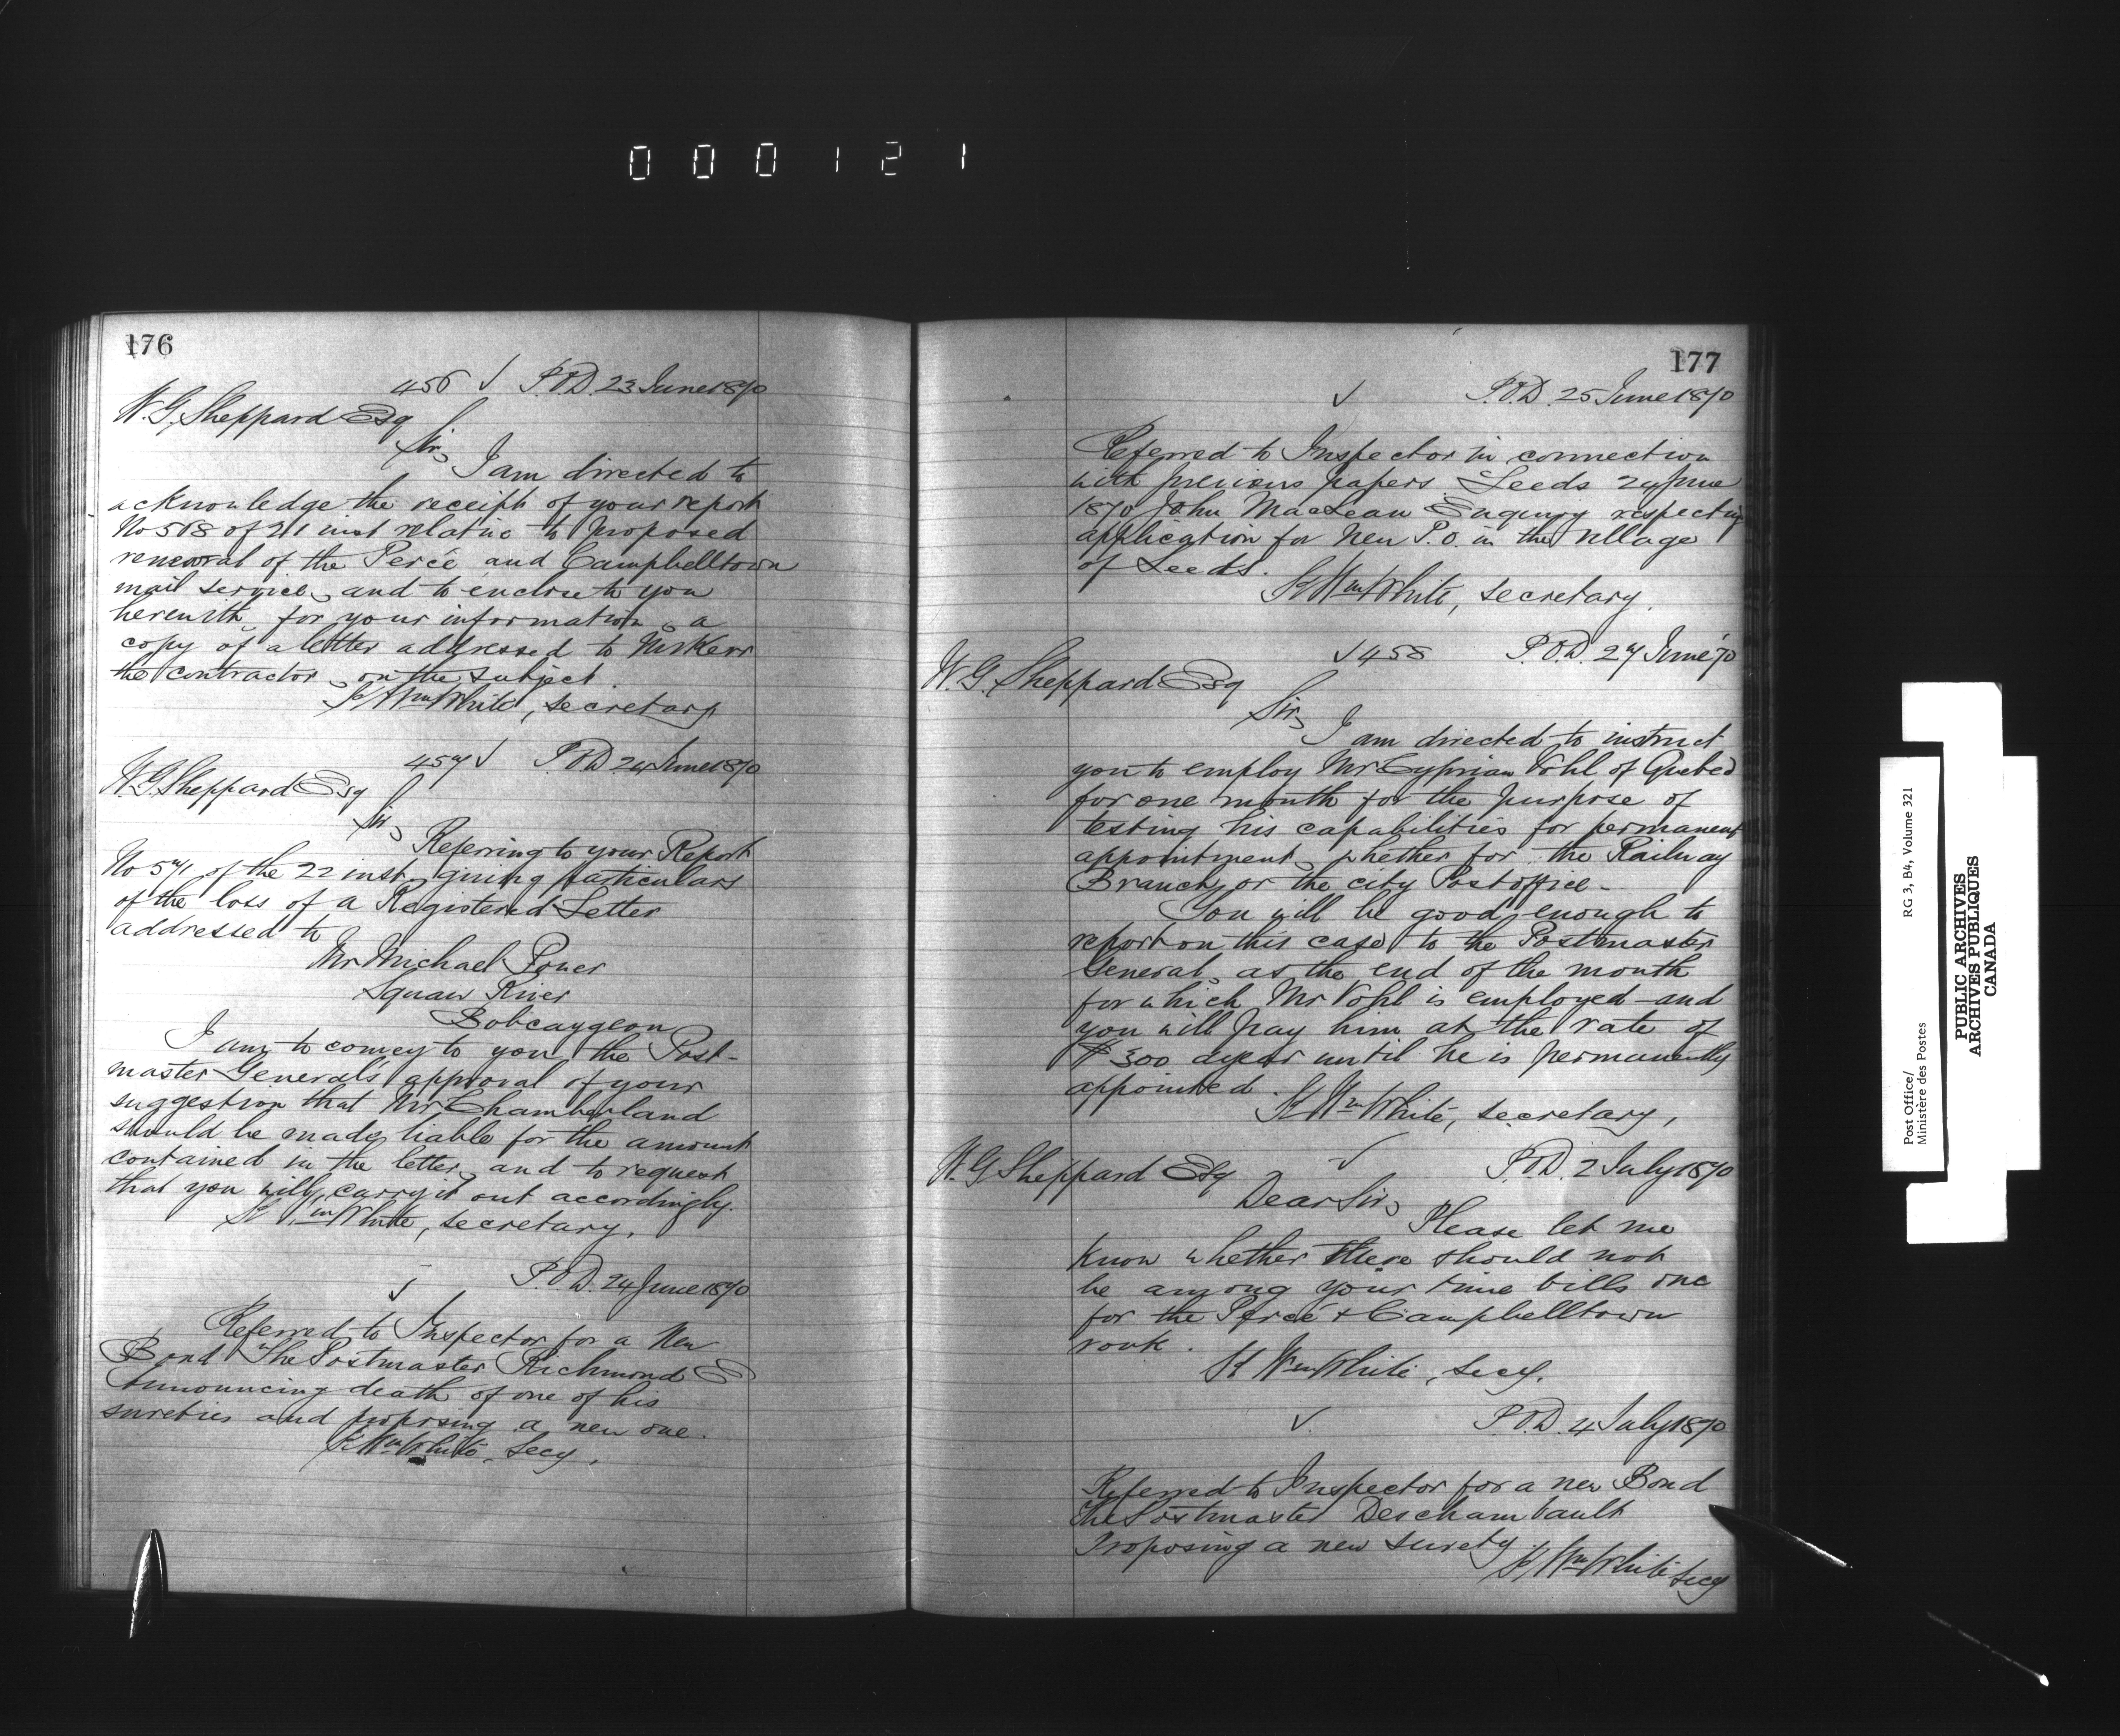 0 0 0 1 2 1
176
456 ✓ P.O.D. 23 June 1870
W. G. Sheppard Esq
Sir,
I am directed to
acknowledge the receipt of your report
No 568 of 21 inst relative to proposed
renewal of the Percé and Campbelltown
mail service, and to enclose to you
herewith, for your information, a
copy of a letter addressed to Mr Kerr
the contractor, on the subject.
Wm White, secretary
457 ✓ P.O.D. 24 June 1870
W. G. Sheppard Esq
Sir,
Referring to your Report
No 571 of the 22 inst, giving particulars
of the loss of a Registered Letter
addressed to
Mr Michael Power
Squaw River
Bobcaygeon
I am to convey to you the Post-
master General's approval of your
suggestion that Mr Chamberland
should be made liable for the amount
contained in the letter, and to request
that you will carry it out accordingly.
Wm White, secretary.
✓ P.O.D. 24 June 1870
Referred to Inspector for a New
Bond The Postmaster Richmond E
Announcing death of one of his
sureties and proposing a new one.
Wm White, Secy.
177
✓ P.O.D. 25 June 1870
Referred to Inspector in connection
with previous papers Leeds 24 June
1870 John MacLean Enquiry respecting
application for New P.O. in the village
of Leeds.
Wm White, secretary.
✓ 458 P.O.D. 27 June 70
W. G. Sheppard Esq
Sir,
I am directed to instruct
you to employ Mr Cyprian Vohl of Quebec
for one month for the purpose of
testing his capabilities for permanent
appointment, whether for the Railway
Branch, or the city Post office.
You will be good enough to
report on this case to the Postmaster
General, as the end of the month
for which Mr Vohl is employed and
you will pay him at the rate of
$300 a year until he is permanently
appointed.
Wm White, secretary,
✓ P.O.D. 2 July 1870
W. G Sheppard Esq
Dear Sir,
Please let me
know whether there should not
be among your time bills one
for the Percé & Campbelltown
route.
Wm White, Secy.
✓ P.O.D. 4 July 1870
Referred to Inspector for a new Bond
The Postmaster Deschambault
Proposing a new surety.
Wm White Secy
Post Office/
Ministère des Postes
RG 3, B4, Volume 321
PUBLIC ARCHIVES
ARCHIVES PUBLIQUES
CANADA